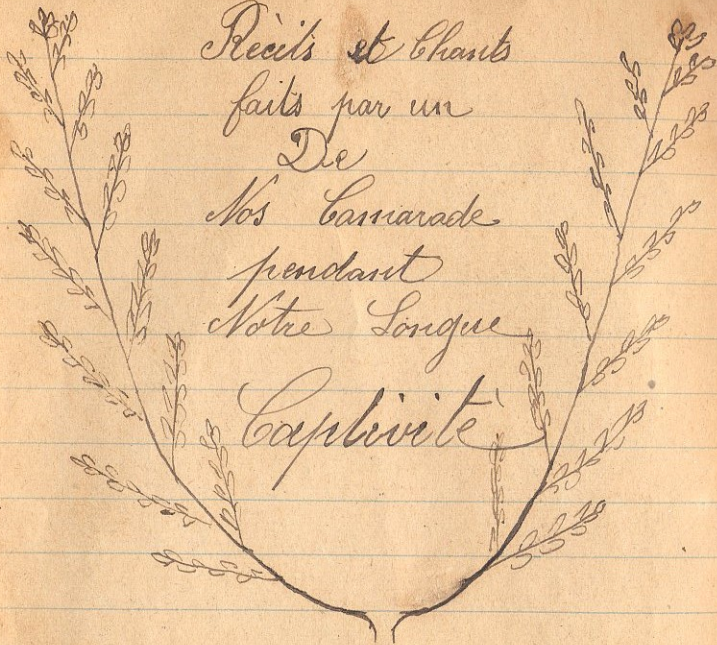 Rècits et Chants
faits par un
De
Nos Camarade
pendant
Notre Longue
Captivitè